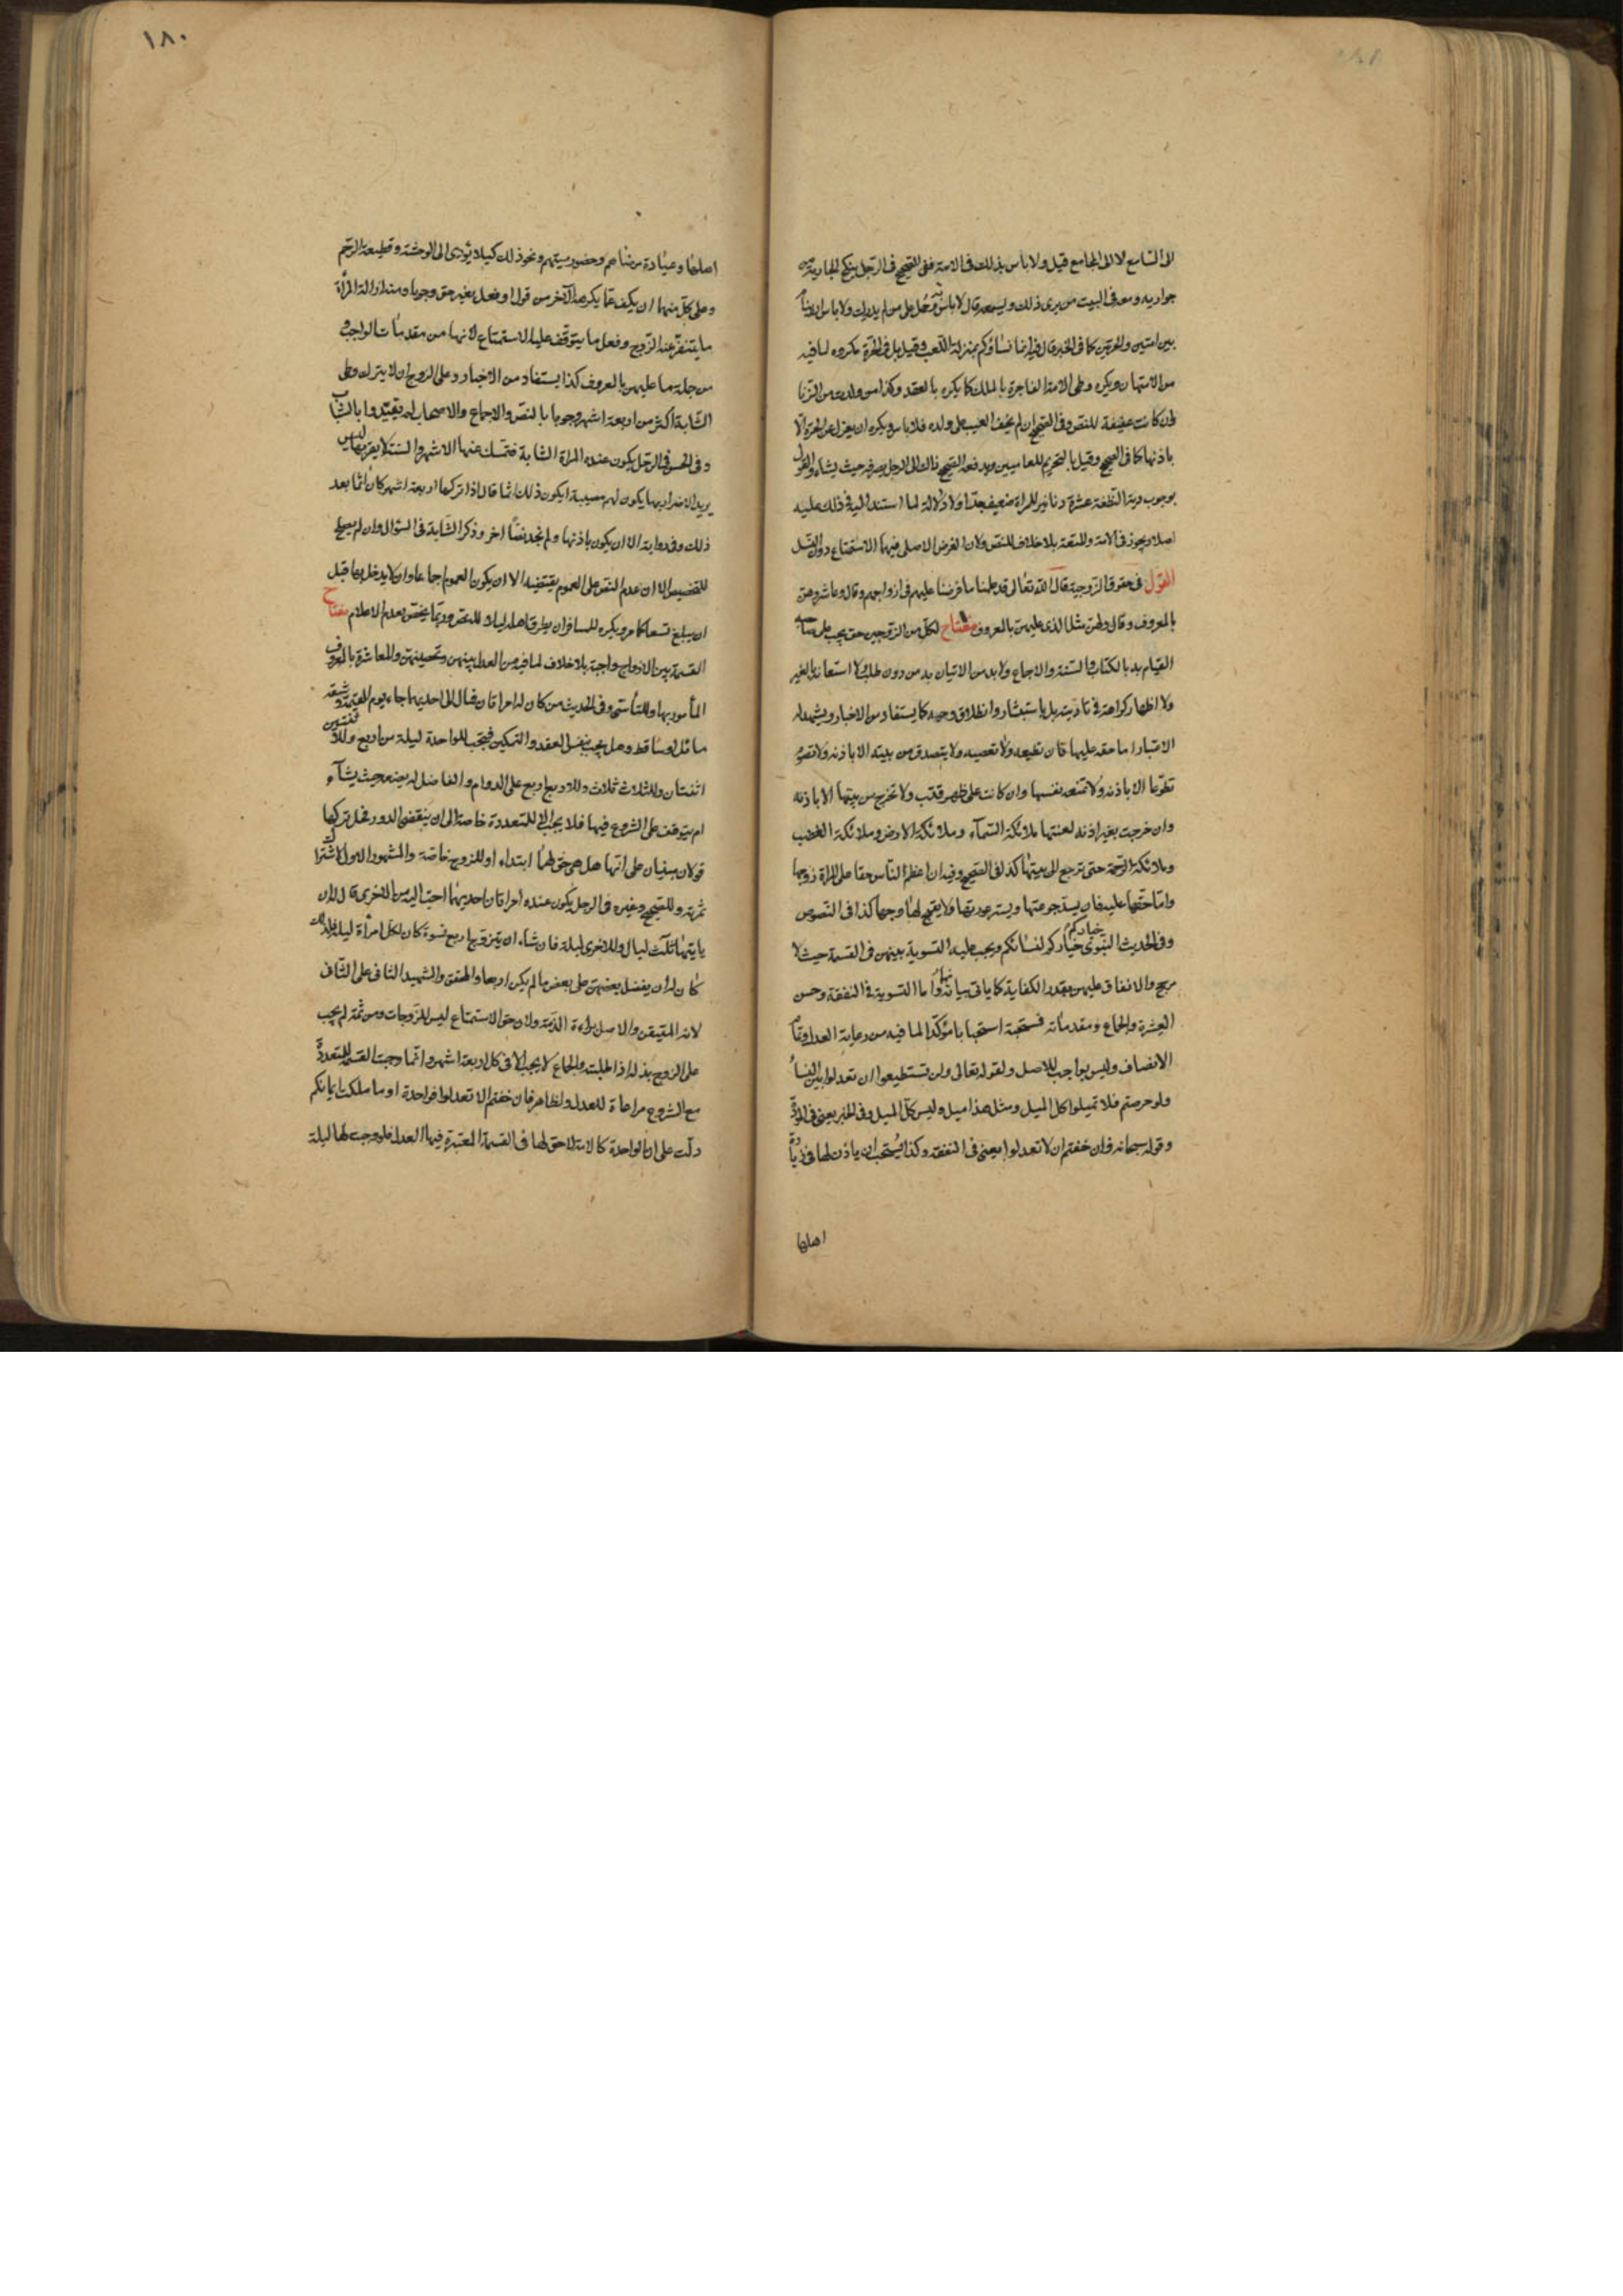 الى السامع لا الى المجامع قيل ولا باس بذلك فى الامة ففى الصحيح فى الرجل ينكح الجارية من
جواريه ومعه فى البيت من يرى ذلك ويسمعه قال لا باس وحمل على من لم يدرك ولا باس ان ينام
بين امتين والحرتين كما فى الخبر قال فيه انما نساؤكم بمنزلة اللعب وقيل بل فى الحرة مكروه لما فيه
من الامتهان ويكره وطى الامة الفاجرة بالملك كما يكره بالعقد وكذا من ولدت من الزنا
وان كانت عفيفة للنص وفى الصحيح ان لم يخف العيب على ولده فلا باس ويكره ان يعزل عن الحرة الا
باذنها كما فى الصحيح وقيل بالتحريم للعاميين ويدفعه الصحيح ذاك الى الرجل يصرفه حيث يشاء والقول
بوجوب دية النطفة عشرة دنانير للمراة ضعيف جدا ولا دلالة لما استند اليه فى ذلك عليه
اصلا ويجوز فى الامة والمتعة بلا خلاف للنص ولان الغرض الاصلى فيهما الاستمتاع دون النسل
القول فى حقوق الزوجية قال الله تعالى قد علمنا ما فرضنا عليهم فى ازواجهم وقال وعاشروهن
بالمعروف وقال ولهن مثل الذى عليهن بالمعروف مفتاح لكل من الزوجين حق يجب على صاحبه
القيام به بالكتاب والسنة والاجماع ولا بد من الاتيان به من دون طلب ولا استعانة بالغير
ولا اظهار كراهة فى تاديته بل باستبشار وانطلاق وجه كما يستفاد من الاخبار ويشهد له
الاعتبار اما حقه عليها فان تطيعه ولا تعصيه ولا يتصدق من بيته الا باذنه ولا تصوم
تطوعا الا باذنه ولا تمنعه نفسها وان كانت على ظهر قتب ولا تخرج من بيتها الا باذنه
وان خرجت بغير اذنه لعنتها ملائكة السماء وملائكة الارض وملائكة الغضب
وملائكة الرحمة حتى ترجع الى بيتها كذا فى الصحيح وفيه ان اعظم الناس حقا على المراة زوجها
واما حقها عليه فان يسد جوعتها ويستر عورتها ولا يقبح لها وجها كذا فى النصوص
وفى الحديث النبوى خياركم خياركم لنسائكم ويجب عليه التسوية بينهن فى القسمة حيث لا
مرجح والانفاق عليهن بقدر الكفاية كما ياتى بيانهما واما التسوية فى النفقة وحسن
العشرة والجماع ومقدماته فمستحبة استحبابا مؤكدا لما فيه من رعاية العدل وتمام
الانصاف وليس بواجب للاصل ولقوله تعالى ولن تستطيعوا ان تعدلوا بين النساء
ولو حرصتم فلا تميلوا كل الميل ومثل هذا ميل وليس كل الميل وفى الخبر يعنى فى المودة
وقوله سبحانه وان خفتم ان لا تعدلوا يعنى فى النفقة وكذا يستحب ان ياذن لها فى زيارة
اهلها
١٨٠
اهلها وعيادة مرضاهم وحضور ميتهم ونحو ذلك كيلا يؤدى الى الوحشة وقطيعة الرحم
وعلى كل منهما ان يكف عما يكرهه الآخر من قول او فعل بغير حق وجوبا ومنه ازالة المرأة
ما يتنفر عنه الزوج وفعل ما يتوقف عليه الاستمتاع لانها من مقدمات الواجب و
من جملة ما عليهن بالمعروف كذا يستفاد من الاخبار وعلى الزوج ان لا يترك وطى
الشابة اكثر من اربعة اشهر وجوبا بالنص والاجماع والاصحاب لم يقيدوا بالشاب
وفى الحسن فى الرجل يكون عنده المراة الشابة فتمسك عنها الاشهر والسنة لا يقربها ليس
يريد الاضرار بها يكون لهم مصيبة ايكون ذلك اثما قال اذا تركها اربعة اشهر كان اثما بعد
ذلك وفى رواية الا ان يكون باذنها ولم نجد نصا اخر وذكر الشابة فى السؤال وان لم يصلح
للتخصيص الا ان عدم النص على العموم يقتضيه الا ان يكون العموم اجماعا وان لا يدخل بها قبل
ان يبلغ تسعا كما مر ويكره للمسافر ان يطرق اهله ليلا للنص وربما يختص بعدم الاعلام مفتاح
القسمة بين الازواج واجبة بلا خلاف لما فيه من العدل بينهن وتحصينهن والمعاشرة بالمعروف
المأمور بها وللتأسى وفى الحديث من كان له امراتان فمال الى احديهما جاء يوم القيمة وشقه
مائل او ساقط وهل يجب بنفس العقد والتمكين فيجب للواحدة ليلة من اربع وللاثنتين
اثنتان وللثلاث ثلاث وللاربع اربع على الدوام والفاضل له يضعه حيث يشآء
ام يتوقف على الشروع فيها فلا يجب الا للمتعددة خاصة الى ان ينقضى الدور فيحل تركها
قولان مبنيان على انها هل هى حق لهما ابتداء او للزوج خاصة والمشهور الاول لاشتراك
ثمرته وللصحيح وغيره فى الرجل يكون عنده امراتان احديهما احب اليه من الاخرى قال له ان
ياتيها ثلث ليال وللاخرى ليلة فان شاء ان يتزوج اربع نسوة كان لكل امرأة ليلة فلذلك
كان له ان يفضل بعضهن على بعض ما لم يكن اربعا والمحقق والشهيد الثانى على الثانى
لانه المتيقن والاصل براءة الذمة ولان حق الاستمتاع ليس للزوجات ومن ثمة لم يجب
على الزوج بذله اذا طلبته والجماع لا يجب الا فى كل اربعة اشهر وانما وجبت القسمة للمتعددة
مع الشروع مراعاة للعدل ولظاهر فان خفتم الا تعدلوا فواحدة او ما ملكت ايمانكم
دلت على ان الواحدة كالامة لا حق لها فى القسمة المعتبرة فيها العدل فلو وجب لها ليلة